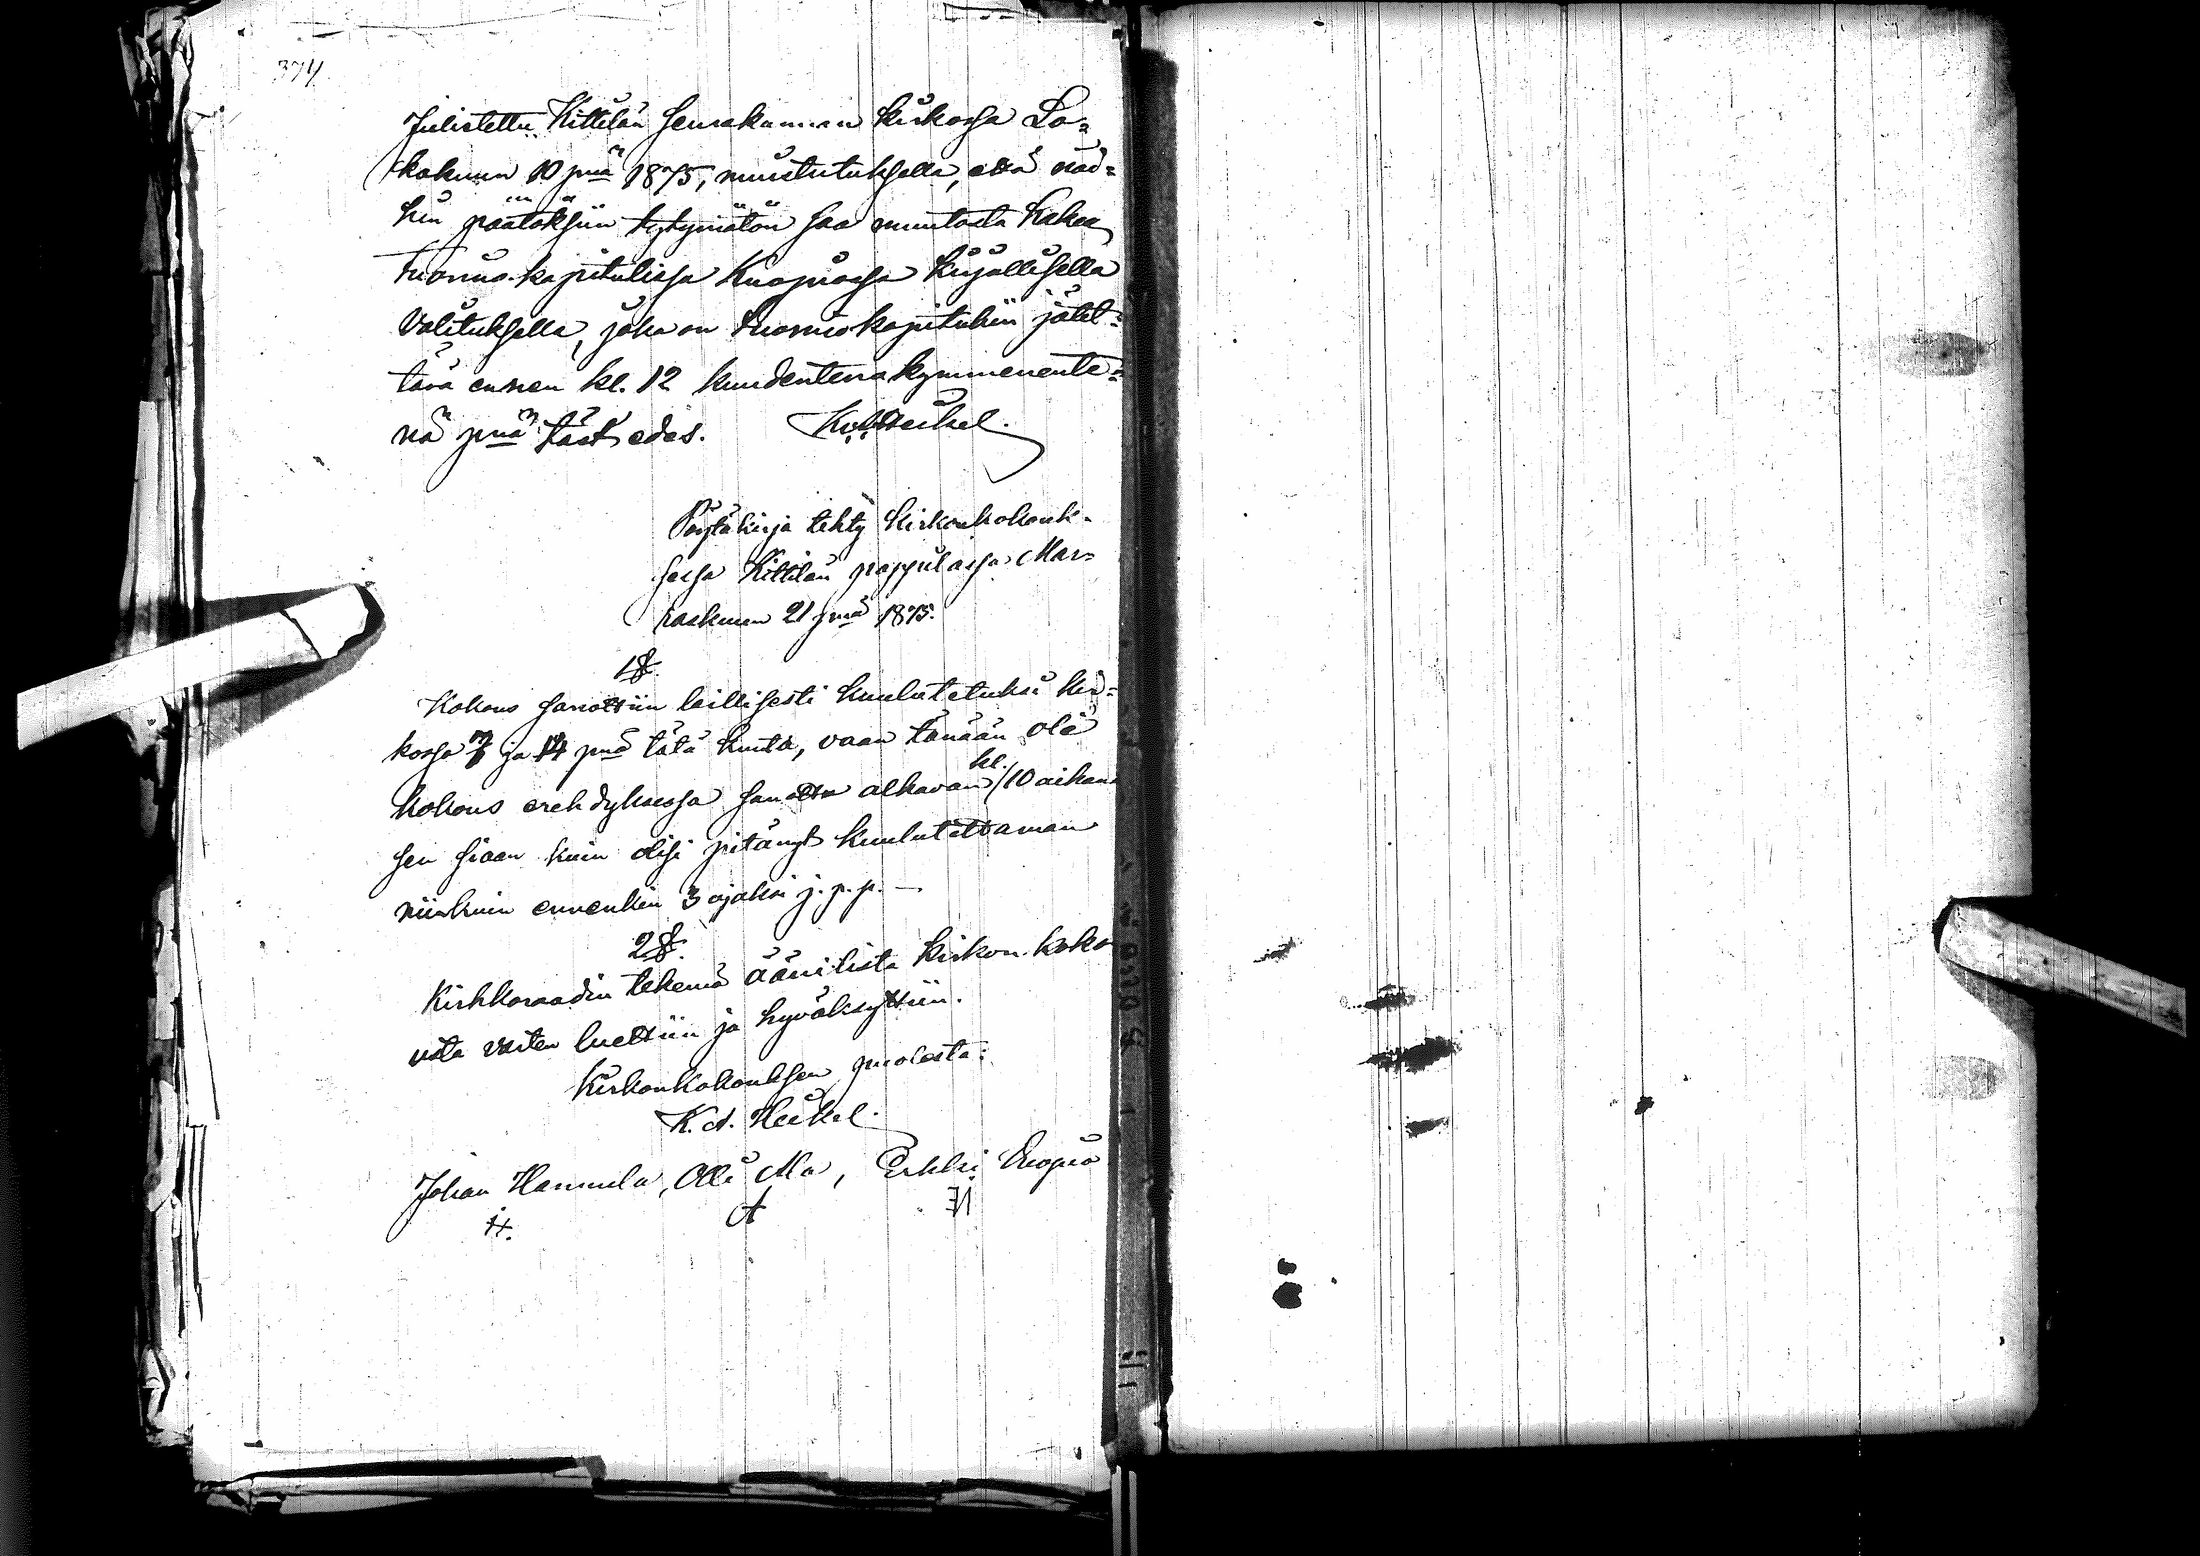 374
Julistettu Kittilän Seurakunnan kirkossa Lo=
kakuun 10 pnä 1875, muistutuksella, että näi=
hin päätöksiin tytymätön saa muutosta hakea
tuomio-kapitulissa Kuopiossa kirjallisella
valituksella, joka on tuomiokapituliin jätet=
tävä ennen kl. 12 kuudentenakymmenente=
nä pnä täst edes. K. A. Heikel.
Pöytäkirja tehty kirkonkokouk=
sessa Kittilän pappilassa Mar=
raskuun 21 pnä 1875.
1 §.
Kokous sanottiin laillisesti kuulutetuksi kir=
kossa 7 ja 14 pnä tätä kuuta, vaan tänään oli
kokous erehdyksessä sanottu alkavan kl. 10 aikana
sen siaan kuin olisi pitänyt kuulutettaman
niinkuin ennenkin 3 ajaksi j. p. p. —
2 §.
Kirkkoraadin tekemä äänilista kirkon-koko
usta varten luettiin ja hyväksyttiin.
Kirkonkokouksen puolesta:
K. A. Heikel.
Johan Hannula, Olli Ala, Erkki Kuopio